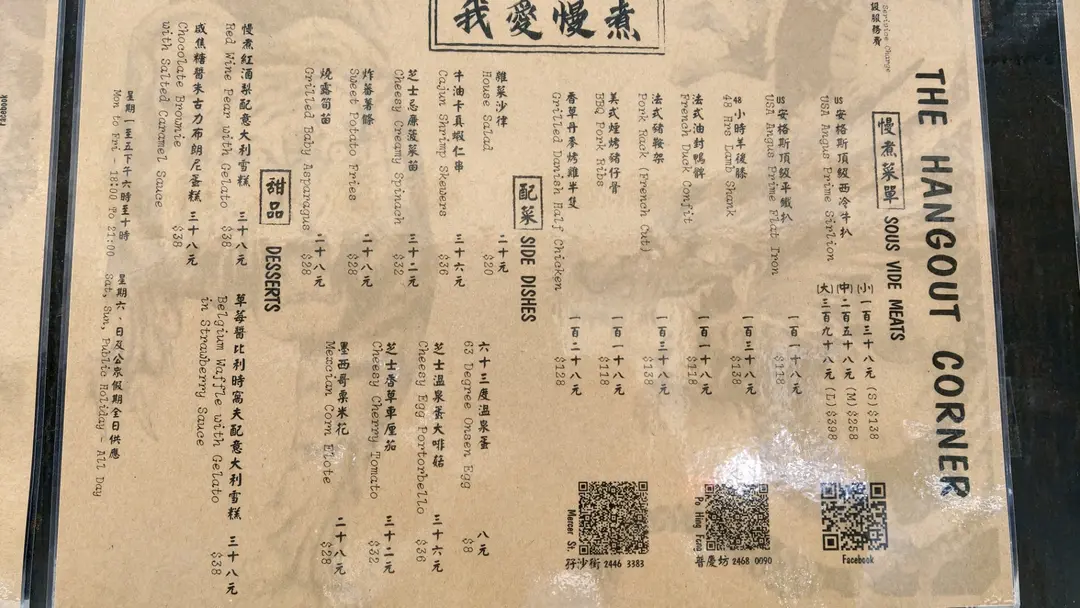 THE HANGOUT CORNER
我愛慢煮
慢煮菜單 SOUS VIDE MEATS
US安格斯頂級西冷牛扒
USA Angus Prime Sirlion
(小)一百三十八元 (S) $138
(中)二百五十八元 (M) $258
(大)三百九十八元 (L) $398
US安格斯頂級平鐵扒 一百一十八元
USA Angus Prime Flat Iron $118
48小時羊後膝 一百三十八元
48 Hrs Lamb Shank $138
法式油封鴨髀 一百一十八元
French Duck Confit $118
法式豬鞍架 一百三十八元
Pork Rack (French Cut) $138
美式煙烤豬仔骨 一百一十八元
BBQ Pork Ribs $118
香草丹麥烤雞半隻 一百二十八元
Grilled Danish Half Chicken $128
配菜 SIDE DISHES
雜菜沙律 二十元
House Salad $20
牛油卡真蝦仁串 三十六元
Cajun Shrimp Skewers $36
芝士忌廉菠菜苗 三十二元
Cheesy Creamy Spinach $32
炸蕃薯條 二十八元
Sweet Potato Fries $28
燒露筍苗 二十八元
Grilled Baby Asparagus $28
六十三度溫泉蛋 八元
63 Degree Onsen Egg $8
芝士溫泉蛋大啡菇 三十六元
Cheesy Egg Portorbello $36
芝士香草車厘茄 三十二元
Cheesy Cherry Tomato $32
墨西哥粟米花 二十八元
Mexcian Corn Elote $28
甜品 DESSERTS
慢煮紅酒梨配意大利雪糕 三十八元
Red Wine Pear with Gelato $38
咸焦糖醬朱古力布朗尼蛋糕 三十八元
Chocolate Brownie $38
with Salted Caramel Sauce
草莓醬比利時窩夫配意大利雪糕 三十八元
Belgium Waffle with Gelato $38
in Strawberry Sauce
星期一至五下午六時至十時
Mon to Fri - 18:00 to 21:00
星期六,日及公眾假期全日供應
Sat, Sun, Public Holiday - All Day
服務費
Service Charge
Facebook
Po Hing Fong 普慶坊 2468 0090
Mercer St. 孖沙街 2446 3383
Facebook